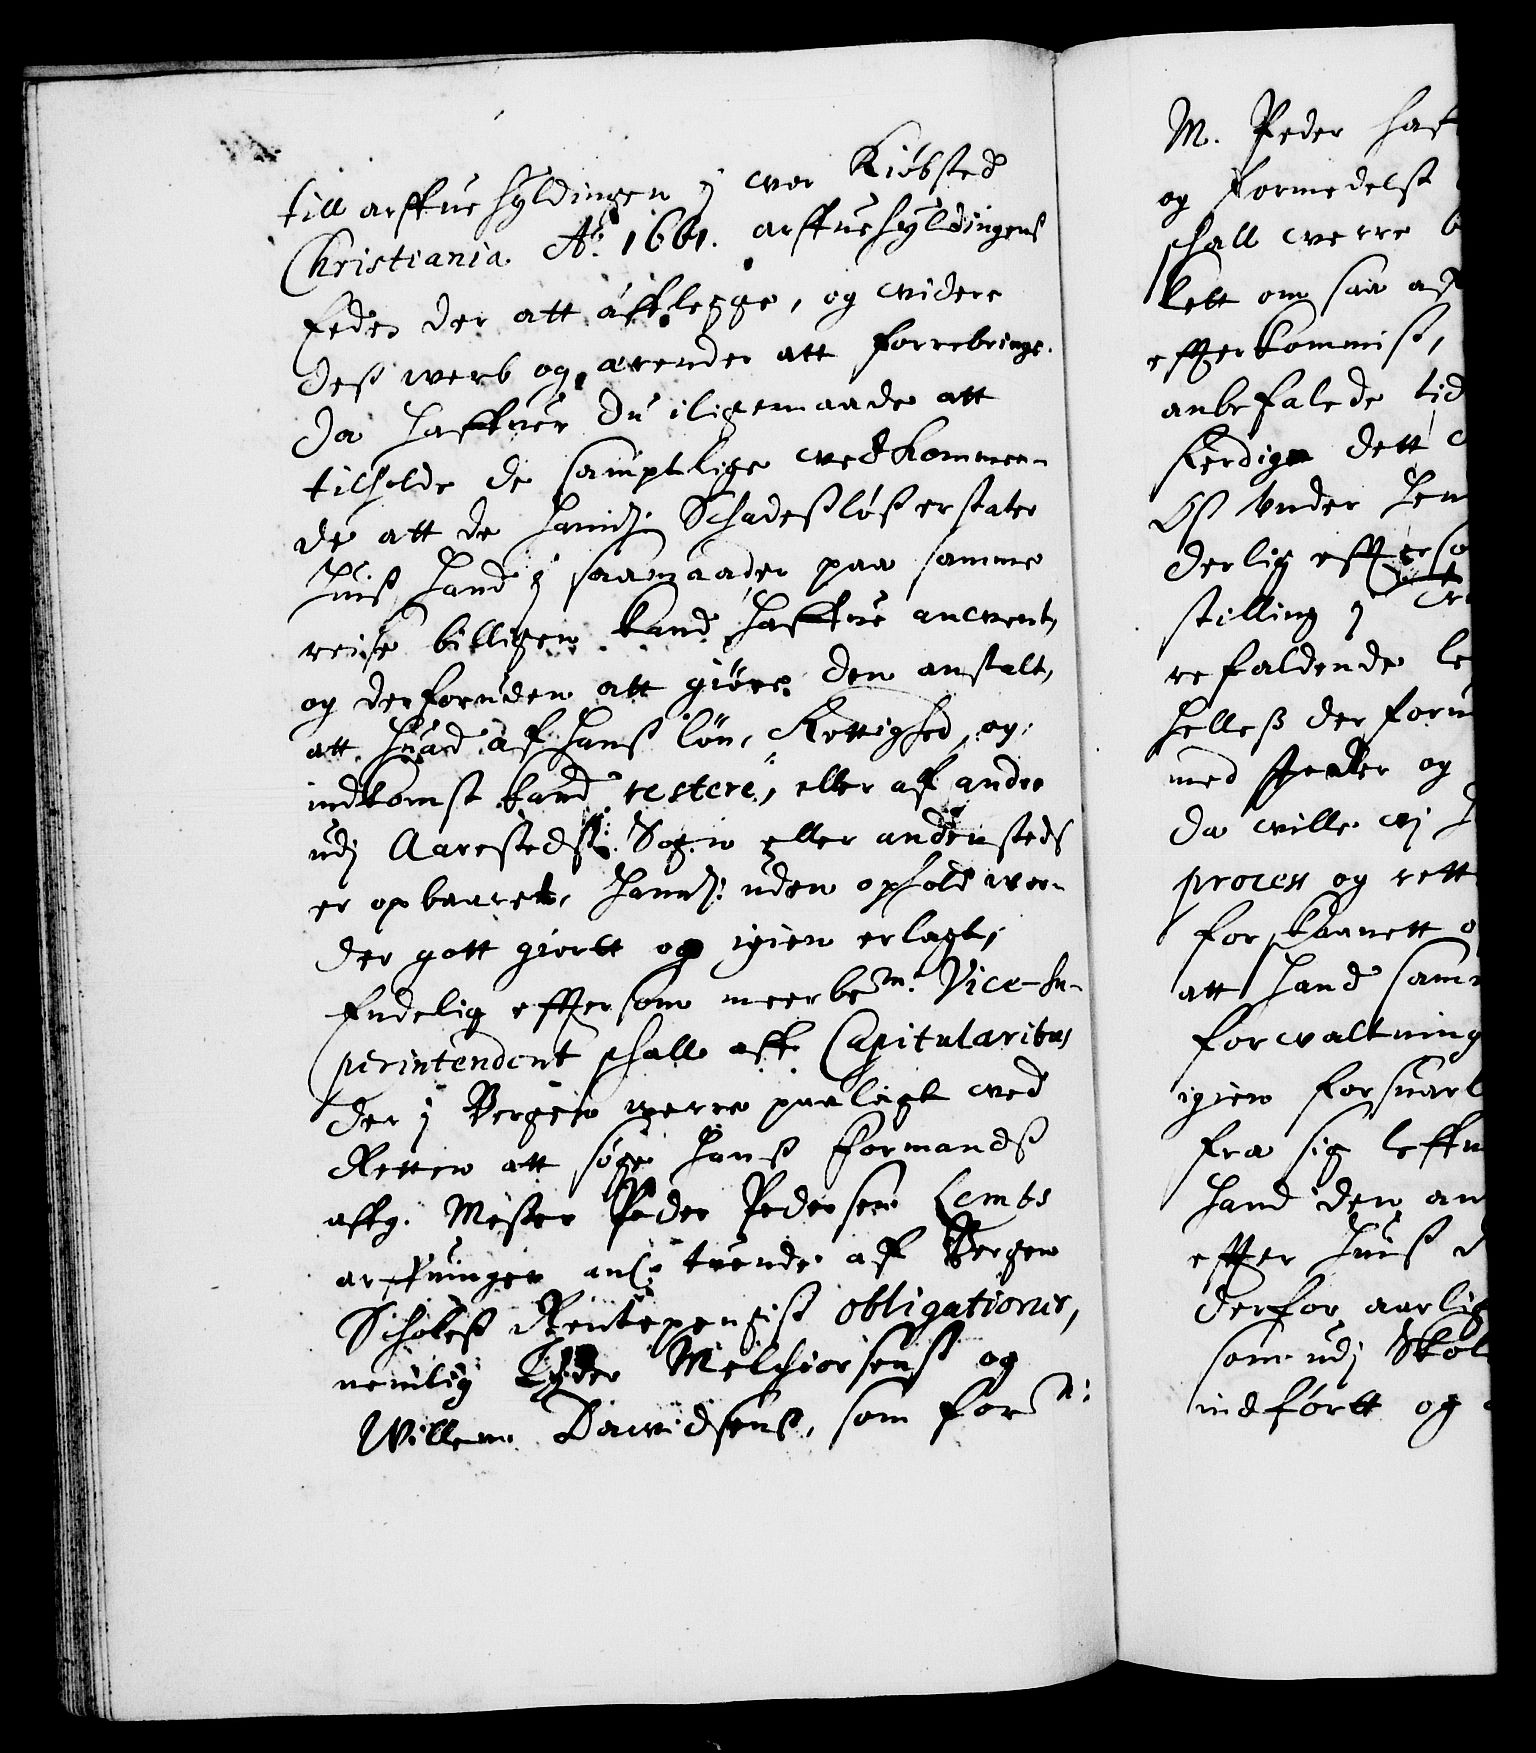 till arffue hyldingen j vor Kiøbsted
Christiania Aº 1661. arffuehyldingens
Eeden der att afflegge, og videre
deß werb og ærender att forrebringe.
Da haffuer du iligemaade att
tilholde de samptlige vedkommen-
de att de hannem Schadesløß erstater
huiß hand j saamaader paa samme
reise billigen kand haffue anvent,
og derforuden att giøre den anstalt,
att huad af hanß løn, Rettighed, og
indkomst kand restere, eller af andre
udj Aarestads Sogn eller andensteds
er opbaaret, hannem uden ophold wor-
der gott giortt og igien erlagt,
Endelig efftersom meerbem.te Vice-Su-
perintendent schall aff Capitularibus
der j Bergen werre paalagt ved
Retten att søge hanß formandß
affg. Mester Peder Pedersen Lembs
arffuinger anl: tuende af Bergen
Scholeß Rentepengis obligationer,
nemlig Lyder Melchiorsenß og
Willem Dawidsenß, som forn:
M. Peder haf
og formedelst
schall werre b
kett om saa
effterkommiß,
anbefalede tid
ferdige dett
Oß under hen
derlig effterso
stilling j
refaldende le
helleß der foru
med og
da wille wj h
process og rett
for og
att hand sam
forvaltning
igien forsuarl
fra sig leffu
hand den an
effter huiß d
derfor aarlig
som udj Skol
indførtt og